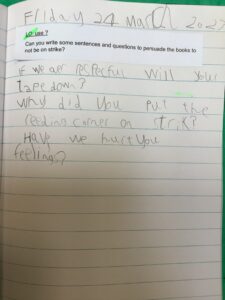 Friday 24 March 2023
LO: use ?
Can you write some sentences and questions to persuade the books to
not be on strike?
if we aer respecful will your
tape down?
Why did You put the
reeding corner on strik?
Have we hurt you
feelings?